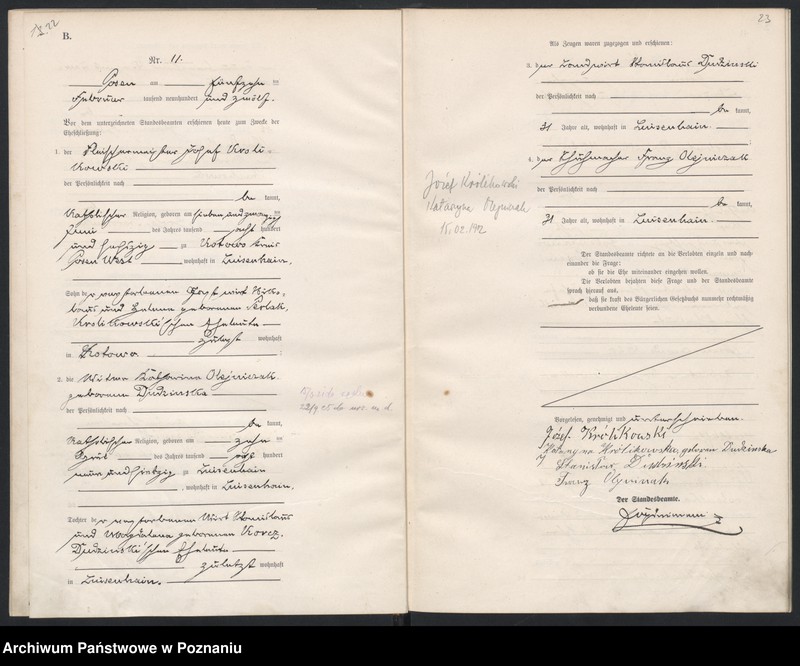 B.
Nr. 11.
Posen am fünfzehn ten
Februar tausend neunhundert und zwölf.
Vor dem unterzeichneten Standesbeamten erschienen heute zum Zwecke der
Eheschließung:
1. der Fleischermeister Josef Kroli-
kowski
der Persönlichkeit nach
be kannt,
katholischer Religion, geboren am sieben und zwanzigsten
Juni des Jahres tausend acht hundert
und sechszig zu Kotowo Kreis
Posen West wohnhaft in Luisenhain,
Sohn der verstorbenen
und geborenen
Krolikowski'schen Eheleute
zuletzt wohnhaft
in Kotowo :
2. die Witwe Katharina Olejniczak
geborene Dudzinska
der Persönlichkeit nach
be kannt,
katholischer Religion, geboren am zehn ten
des Jahres tausend acht hundert
neun und siebzig zu Luisenhain
, wohnhaft in Luisenhain,
Tochter der verstorbenen Wirt Stanislaus
und Magdalena geborenen
Dudzinski'schen Eheleute
zuletzt wohnhaft
in Luisenhain.
23
Als Zeugen waren zugezogen und erschienen:
3. der Landwirt Stanislaus Dudzinski
der Persönlichkeit nach
be kannt,
31 Jahre alt, wohnhaft in Luisenhain.
4. der Schuhmacher Franz Olejniczak
der Persönlichkeit nach
be kannt,
31 Jahre alt, wohnhaft in Luisenhain.
Józef Królikowski
15.02.1912
Der Standesbeamte richtete an die Verlobten einzeln und nach-
einander die Frage:
ob sie die Ehe miteinander eingehen wollen.
Die Verlobten bejahten diese Frage und der Standesbeamte
sprach hierauf aus,
daß sie kraft des Bürgerlichen Gesetzbuchs nunmehr rechtmäßig
verbundene Eheleute seien.
Vorgelesen, genehmigt und unterschrieben.
Józef Królikowski
Katarzyna Królikowska, geboren Dudzinska
Stanisław Dudziński
Franz
Der Standesbeamte.
Archiwum Państwowe w Poznaniu